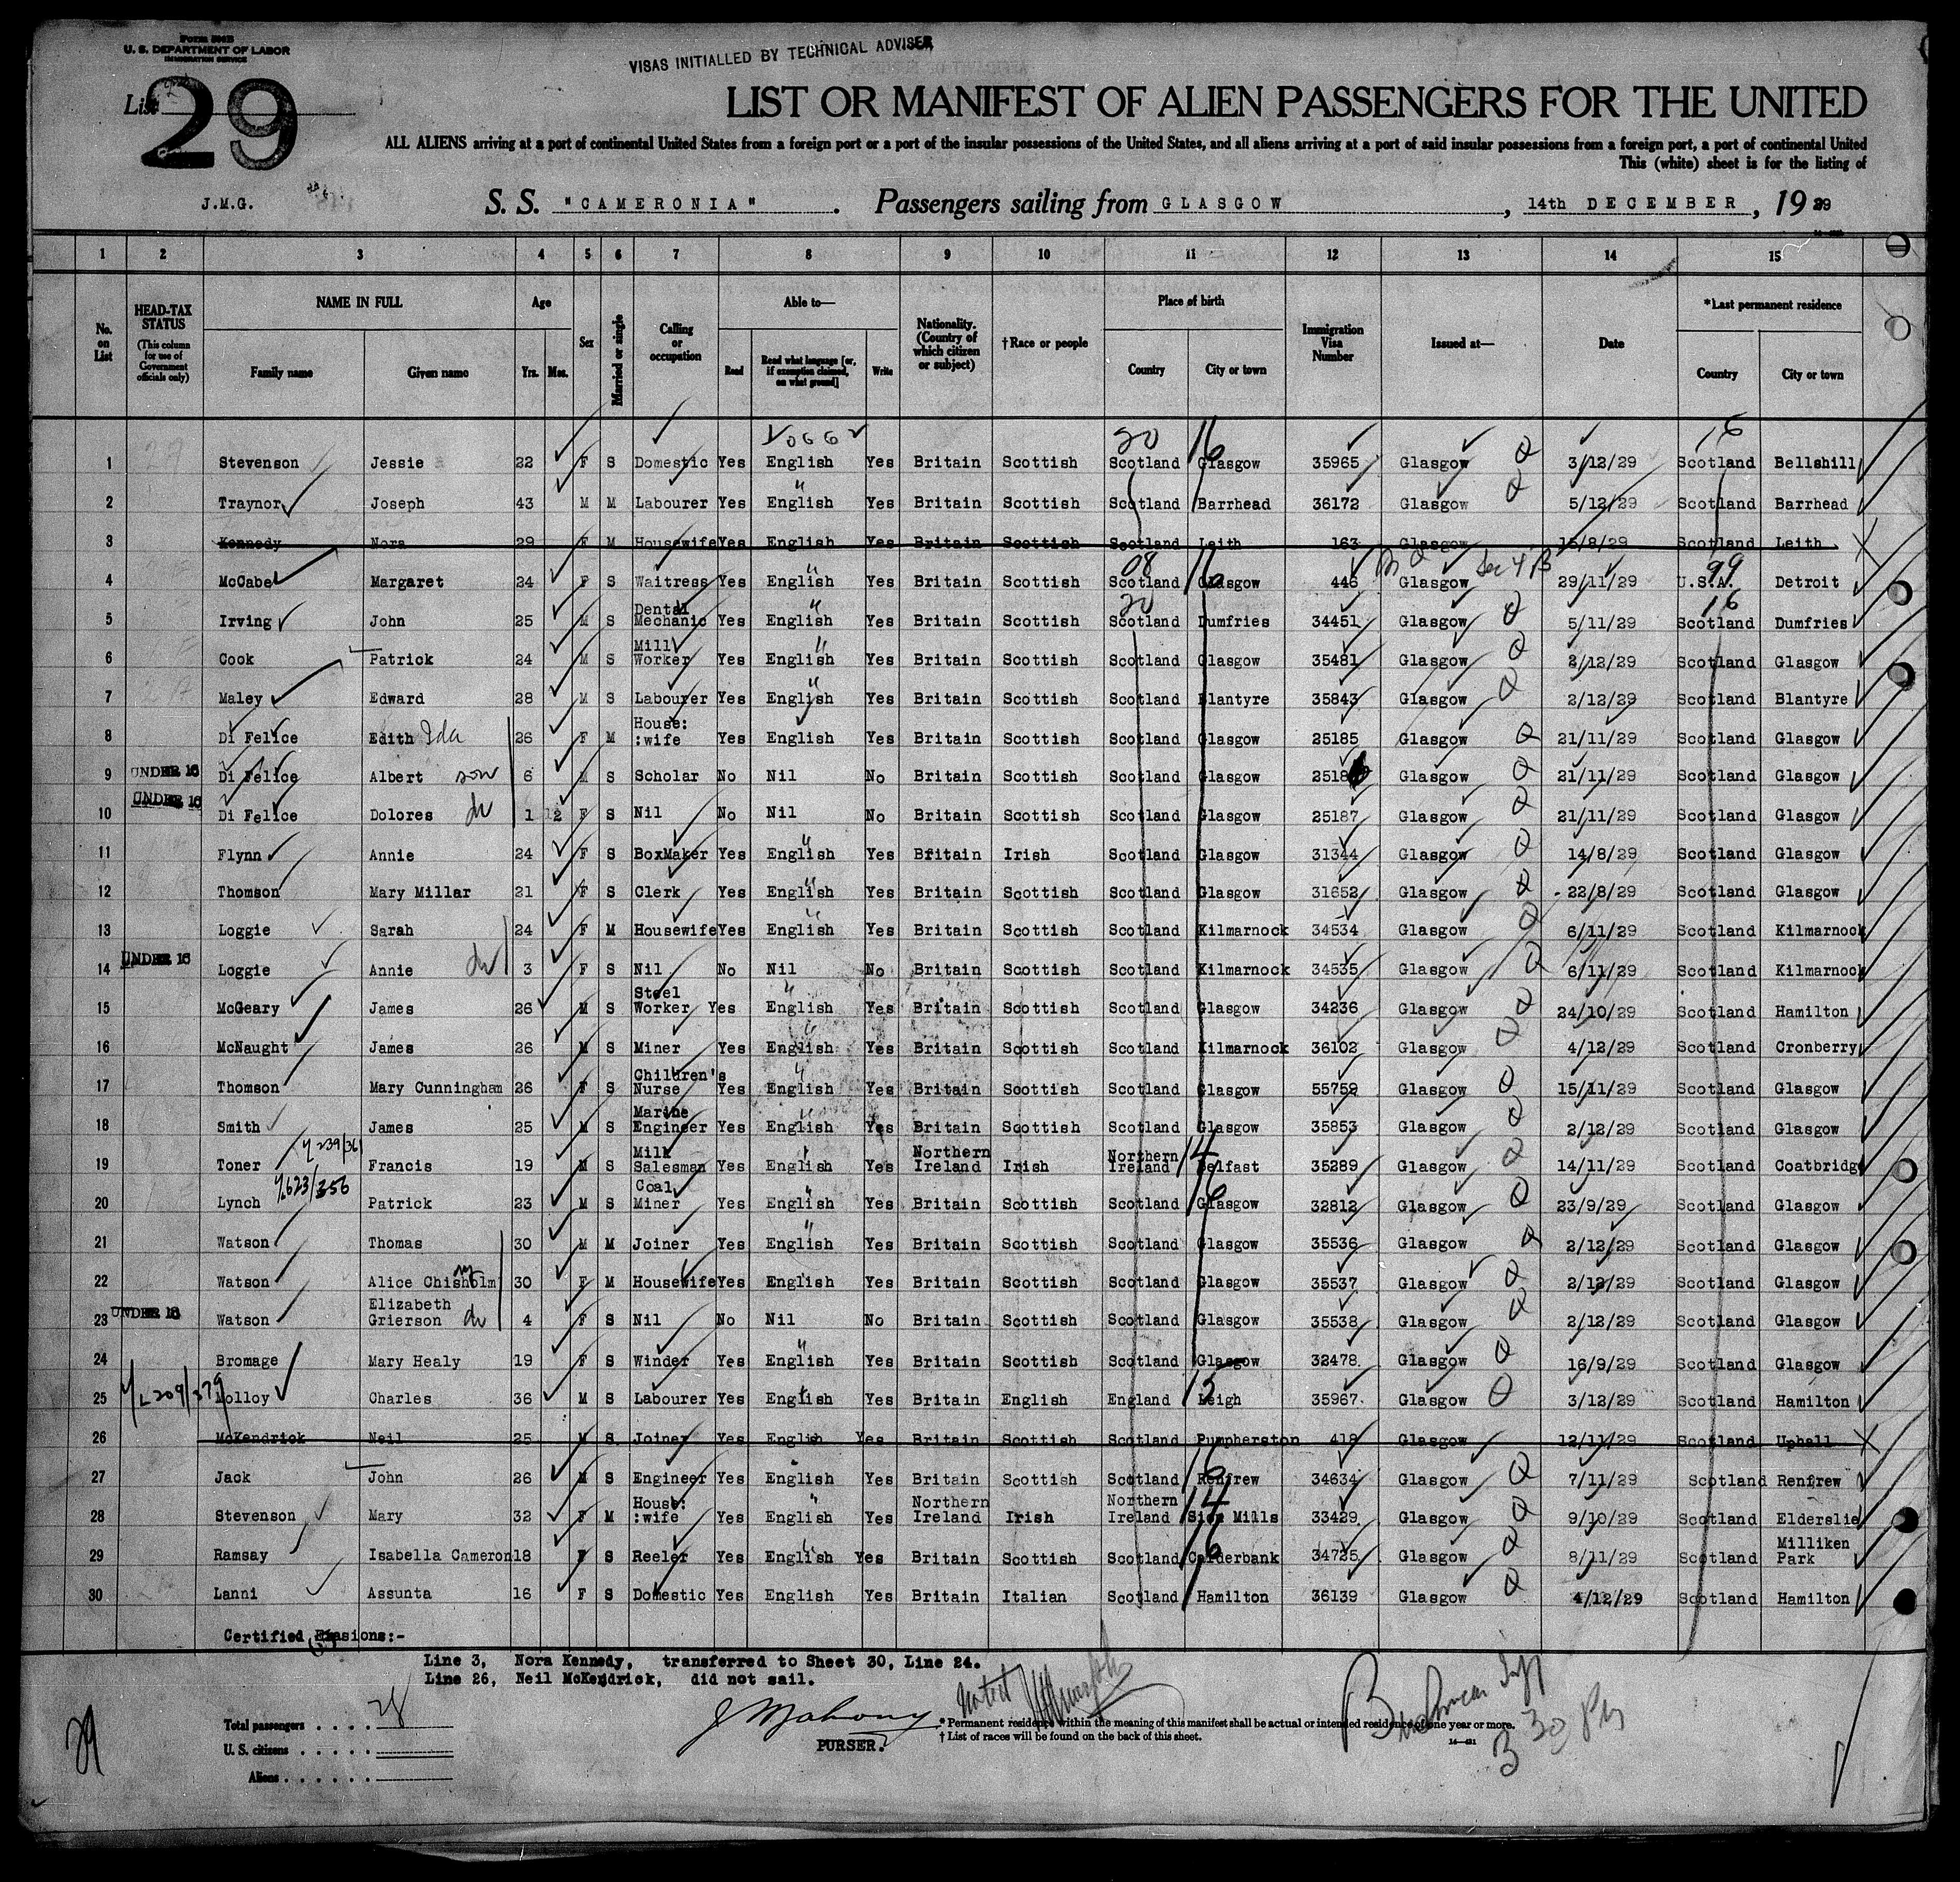 Form 500B
U. S. DEPARTMENT OF LABOR
IMMIGRATION SERVICE
VISAS INITIALLED BY TECHNICAL ADVISER
List 29
LIST OR MANIFEST OF ALIEN PASSENGERS FOR THE UNITED
ALL ALIENS arriving at a port of continental United States from a foreign port or a port of the insular possessions of the United States, and all aliens arriving at a port of said insular possessions from a foreign port, a port of continental United
This (white) sheet is for the listing of
J.M.G. S. S. "CAMERONIA". Passengers sailing from GLASGOW, 14th DECEMBER, 1929
1 2 3 4 5 6 7 8 9 10 11 12 13 14 15
No. on List
HEAD-TAX STATUS (This column for use of Government officials only)
NAME IN FULL Family name Given name
Age Yrs. Mos.
Sex
Married or single
Calling or occupation
Able to— Read Read what language [or, if exemption claimed, on what ground] Write
Nationality. (Country of which citizen or subject)
†Race or people
Place of birth Country City or town
Immigration Visa Number
Issued at—
Date
*Last permanent residence Country City or town
20 16 16
1 Stevenson Jessie 22 F S Domestic Yes English Yes Britain Scottish Scotland Glasgow 35965 Glasgow 3/12/29 Scotland Bellshill
2 Traynor Joseph 43 M M Labourer Yes English Yes Britain Scottish Scotland Barrhead 36172 Glasgow 5/12/29 Scotland Barrhead
3 Kennedy Nora 29 F M Housewife Yes English Yes Britain Scottish Scotland Leith 163 Glasgow 15/8/29 Scotland Leith
08 16 Sec 4 B 99
4 McCabe Margaret 24 F S Waitress Yes English Yes Britain Scottish Scotland Glasgow 446 Glasgow 29/11/29 U.S.A. Detroit
20 16
5 Irving John 25 M S Dental Mechanic Yes English Yes Britain Scottish Scotland Dumfries 34451 Glasgow 5/11/29 Scotland Dumfries
6 Cook Patrick 24 M S Mill Worker Yes English Yes Britain Scottish Scotland Glasgow 35481 Glasgow 2/12/29 Scotland Glasgow
7 Maley Edward 28 M S Labourer Yes English Yes Britain Scottish Scotland Blantyre 35843 Glasgow 2/12/29 Scotland Blantyre
8 Di Felice Edith Ida 26 F M House: :wife Yes English Yes Britain Scottish Scotland Glasgow 25185 Glasgow 21/11/29 Scotland Glasgow
UNDER 16
9 Di Felice Albert son 6 M S Scholar No Nil No Britain Scottish Scotland Glasgow 2518 Glasgow 21/11/29 Scotland Glasgow
UNDER 16
10 Di Felice Dolores da 1 2 F S Nil No Nil No Britain Scottish Scotland Glasgow 25187 Glasgow 21/11/29 Scotland Glasgow
11 Flynn Annie 24 F S BoxMaker Yes English Yes Britain Irish Scotland Glasgow 31344 Glasgow 14/8/29 Scotland Glasgow
12 Thomson Mary Millar 21 F S Clerk Yes English Yes Britain Scottish Scotland Glasgow 31652 Glasgow 22/8/29 Scotland Glasgow
13 Loggie Sarah 24 F M Housewife Yes English Yes Britain Scottish Scotland Kilmarnock 34534 Glasgow 6/11/29 Scotland Kilmarnock
UNDER 16
14 Loggie Annie da 3 F S Nil No Nil No Britain Scottish Scotland Kilmarnock 34535 Glasgow 6/11/29 Scotland Kilmarnock
15 McGeary James 26 M S Steel Worker Yes English Yes Britain Scottish Scotland Glasgow 34236 Glasgow 24/10/29 Scotland Hamilton
16 McNaught James 26 M S Miner Yes English Yes Britain Scottish Scotland Kilmarnock 36102 Glasgow 4/12/29 Scotland Cronberry
17 Thomson Mary Cunningham 26 F S Children's Nurse Yes English Yes Britain Scottish Scotland Glasgow 55759 Glasgow 15/11/29 Scotland Glasgow
18 Smith James 25 M S Marine Engineer Yes English Yes Britain Scottish Scotland Glasgow 35853 Glasgow 2/12/29 Scotland Glasgow
19 Toner Francis 19 M S Milk Salesman Yes English Yes Northern Ireland Irish Northern Ireland 14 Belfast 35289 Glasgow 14/11/29 Scotland Coatbridge
20 Lynch Patrick 23 M S Coal Miner Yes English Yes Britain Scottish Scotland 16 Glasgow 32812 Glasgow 23/9/29 Scotland Glasgow
21 Watson Thomas 30 M M Joiner Yes English Yes Britain Scottish Scotland Glasgow 35536 Glasgow 2/12/29 Scotland Glasgow
22 Watson Alice Chisholm 30 F M Housewife Yes English Yes Britain Scottish Scotland Glasgow 35537 Glasgow 2/12/29 Scotland Glasgow
UNDER 16
23 Watson Elizabeth Grierson da 4 F S Nil No Nil No Britain Scottish Scotland Glasgow 35538 Glasgow 2/12/29 Scotland Glasgow
24 Bromage Mary Healy 19 F S Winder Yes English Yes Britain Scottish Scotland Glasgow 32478 Glasgow 16/9/29 Scotland Glasgow
25 Molloy Charles 36 M S Labourer Yes English Yes Britain English England Leigh 35967 Glasgow 3/12/29 Scotland Hamilton
26 McKendrick Neil 25 M S Joiner Yes English Yes Britain Scottish Scotland Pumpherston 418 Glasgow 12/11/29 Scotland Uphall
27 Jack John 26 M S Engineer Yes English Yes Britain Scottish Scotland 16 Renfrew 34634 Glasgow 7/11/29 Scotland Renfrew
28 Stevenson Mary 32 F M House: :wife Yes English Yes Northern Ireland Irish Northern Ireland 14 Sion Mills 33429 Glasgow 9/10/29 Scotland Elderslie
29 Ramsay Isabella Cameron 18 F S Reeler Yes English Yes Britain Scottish Scotland 16 Calderbank 34735 Glasgow 8/11/29 Scotland Milliken Park
30 Lanni Assunta 16 F S Domestic Yes English Yes Britain Italian Scotland Hamilton 36139 Glasgow 4/12/29 Scotland Hamilton
Certified Erasions:-
Line 3, Nora Kennedy, transferred to Sheet 30, Line 24.
Line 26, Neil McKendrick, did not sail.
Total passengers . . . . 28
U. S. citizens . . . . .
Aliens . . . . . .
29
J Mahony
PURSER.
* Permanent residence within the meaning of this manifest shall be actual or intended residence of one year or more.
† List of races will be found on the back of this sheet.
3 30 Pm